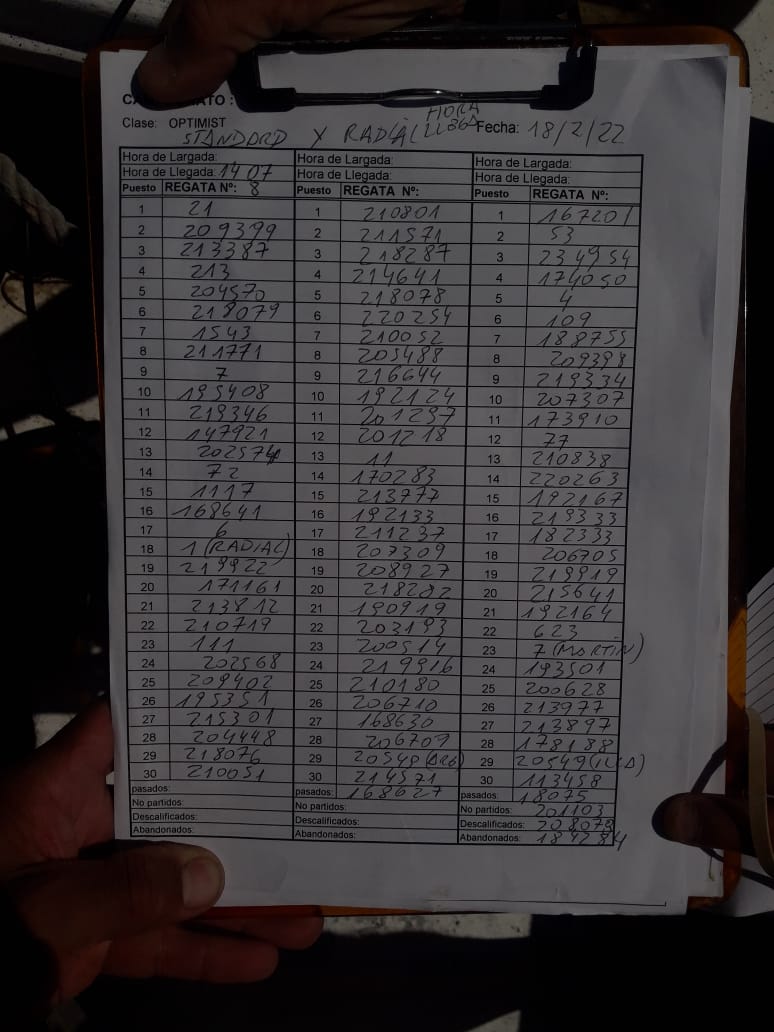 CA
ATO :
Clase: OPTIMIST
STANDARD Y RADIAL
HORA
LLEGA
Fecha: 18/2/22
Hora de Largada: Hora de Largada: Hora de Largada:
Hora de Llegada: 14 07 Hora de Llegada: Hora de Llegada:
Puesto REGATA Nº: 8 Puesto REGATA Nº: Puesto REGATA Nº:
1 21 1 210801 1 167201
2 209399 2 211571 2 53
3 213387 3 218287 3 234954
4 213 4 214641 4 174050
5 204570 5 218078 5 4
6 218079 6 220254 6 109
7 1543 7 210052 7 188755
8 211771 8 205488 8 209398
9 7 9 216644 9 219334
10 195408 10 192124 10 207307
11 219346 11 201297 11 173910
12 147921 12 201218 12 77
13 202574 13 11 13 210838
14 72 14 170283 14 220263
15 1117 15 213777 15 192167
16 168641 16 192133 16 219333
17 6 17 211237 17 182333
18 1 (RADIAL) 18 207309 18 206705
19 219922 19 208927 19 219919
20 171161 20 218282 20 215641
21 213812 21 190919 21 192164
22 210719 22 203193 22 623
23 111 23 200514 23 7 (MARTIN)
24 202568 24 219916 24 193501
25 209402 25 210180 25 200628
26 195351 26 206710 26 213977
27 215301 27 168630 27 213897
28 204448 28 206709 28 178188
29 218076 29 20549 (ARG) 29 20549
30 210051 30 214571 30 113458
pasados: pasados: 168627 pasados: 18075
No partidos: No partidos: No partidos: 201103
Descalificados: Descalificados: Descalificados: 208079
Abandonados: Abandonados: Abandonados: